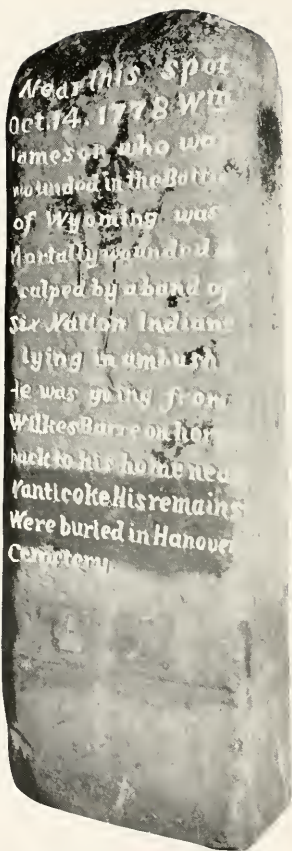 Near this spot
Oct. 14. 1778 Wm
Jameson who was
wounded in the Battle
of Wyoming was
Mortally wounded
calped by a band of
Six Nation Indians
lying in ambush
He was going from
Wilkes Barre on hor
back to his home nea
Nanticoke. His remains
Were buried in Hanover
Cemetery.